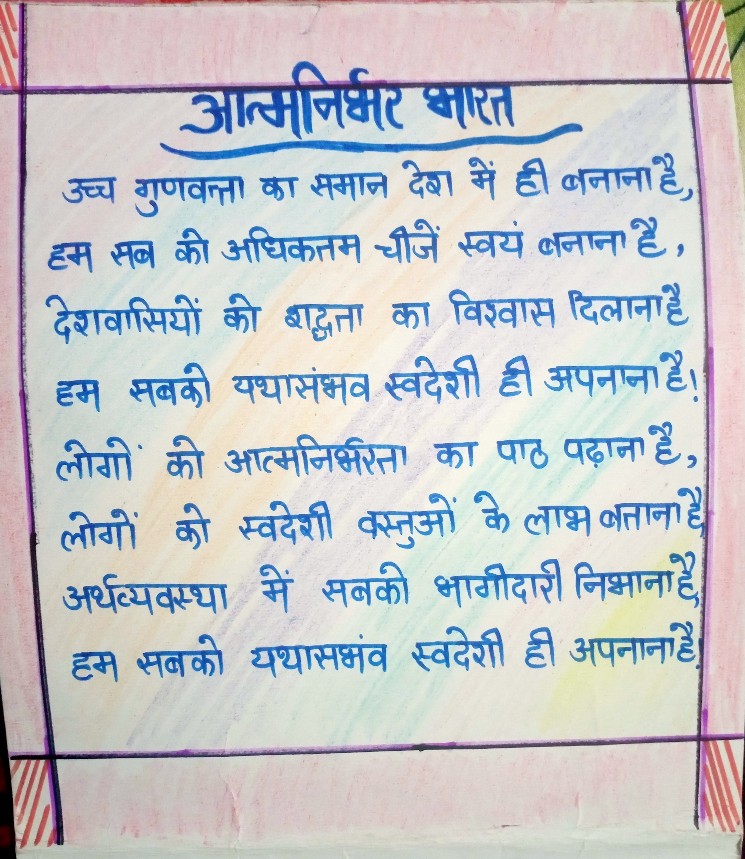 आत्मनिर्भर भारत
उच्च गुणवत्ता का समान देश में ही बनाना है,
हम सब को अधिकतम चीजें स्वयं बनाना है,
देशवासियों को शद्धता का विश्वास दिलाना है
हम सबको यथासंभव स्वदेशी ही अपनाना है!
लोगों को आत्मनिर्भरता का पाठ पढ़ाना है,
लोगों को स्वदेशी वस्तुओं के लाभ बताना है,
अर्थव्यवस्था में सबको भागीदारी निभाना है,
हम सबको यथासभंव स्वदेशी ही अपनाना है!